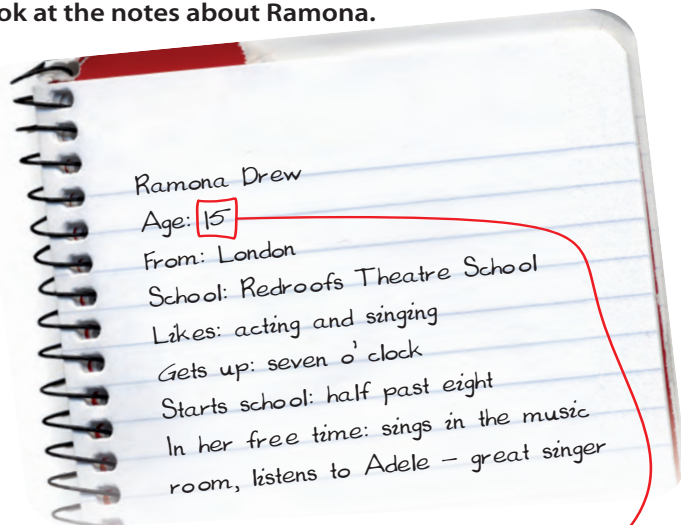 ok at the notes about Ramona.
Ramona Drew
Age: 15
From: London
School: Redroofs Theatre School
Likes: acting and singing
Gets up: seven o'clock
Starts school: half past eight
In her free time: sings in the music
room, listens to Adele – great singer